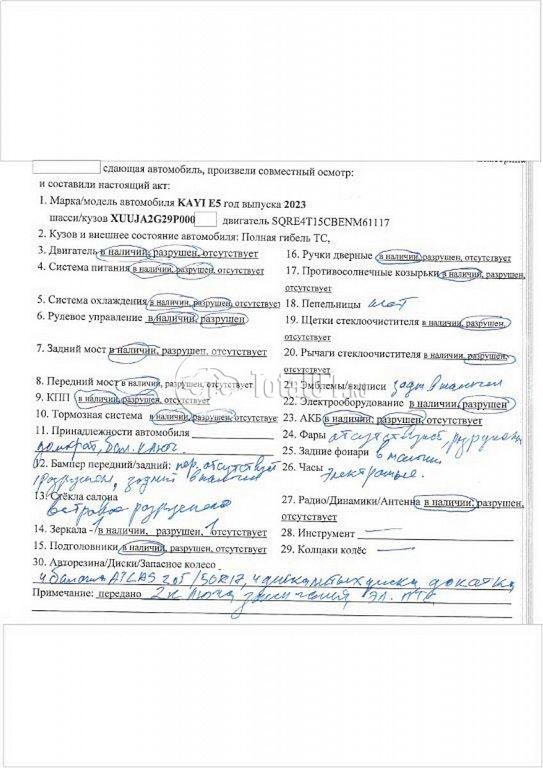 сдающая автомобиль, произвели совместный осмотр:
и составили настоящий акт:
1. Марка/модель автомобиля KAYI E5 год выпуска 2023
шасси/кузов XUUJA2G29P000 двигатель SQRE4T15CBENM61117
2. Кузов и внешнее состояние автомобиля: Полная гибель ТС,
3. Двигатель в наличии, разрушен, отсутствует
4. Система питания в наличии, разрушен, отсутствует
5. Система охлаждения в наличии, разрушен, отсутствует
6. Рулевое управление в наличии, разрушен
7. Задний мост в наличии, разрушен, отсутствует
8. Передний мост в наличии, разрушен, отсутствует
9. КПП в наличии, разрушен, отсутствует
10. Тормозная система в наличии, разрушен, отсутствуе
11. Принадлежности автомобиля
домкрат, бал. ключ.
12. Бампер передний/задний: пер. отсутствует
разрушен, задний в наличии
13. Стёкла салона
ветровое разрушено
14. Зеркала -1 в наличии, разрушен, 1 отсутствует
15. Подголовники в наличии, разрушен, отсутствует
16. Ручки дверные в наличии, разрушен, отсутствует
17. Противосолнечные козырьки в наличии, разрушен,
отсутствует
18. Пепельницы нет
19. Щетки стеклоочистителя в наличии, разрушен,
отсутствует
20. Рычаги стеклоочистителя в наличии, разрушен,
отсутствует
21. Эмблемы/надписи задн в наличии
22. Электрооборудование в наличии, разрушен
23. АКБ в наличии, разрушен, отсутствует
24. Фары отсутствуют, разрушены
25. Задние фонари в наличии
26. Часы электронные.
27. Радио/Динамики/Антенна в наличии, разрушен,
отсутствует
28. Инструмент —
29. Колпаки колёс —
30. Авторезина/Диски/Запасное колесо
4 баллона ATLAS 205/50R17, 4 диска литых диски, докатка
Примечание: передано 2 ключа зажигания эл. ПТС
Total01.ru